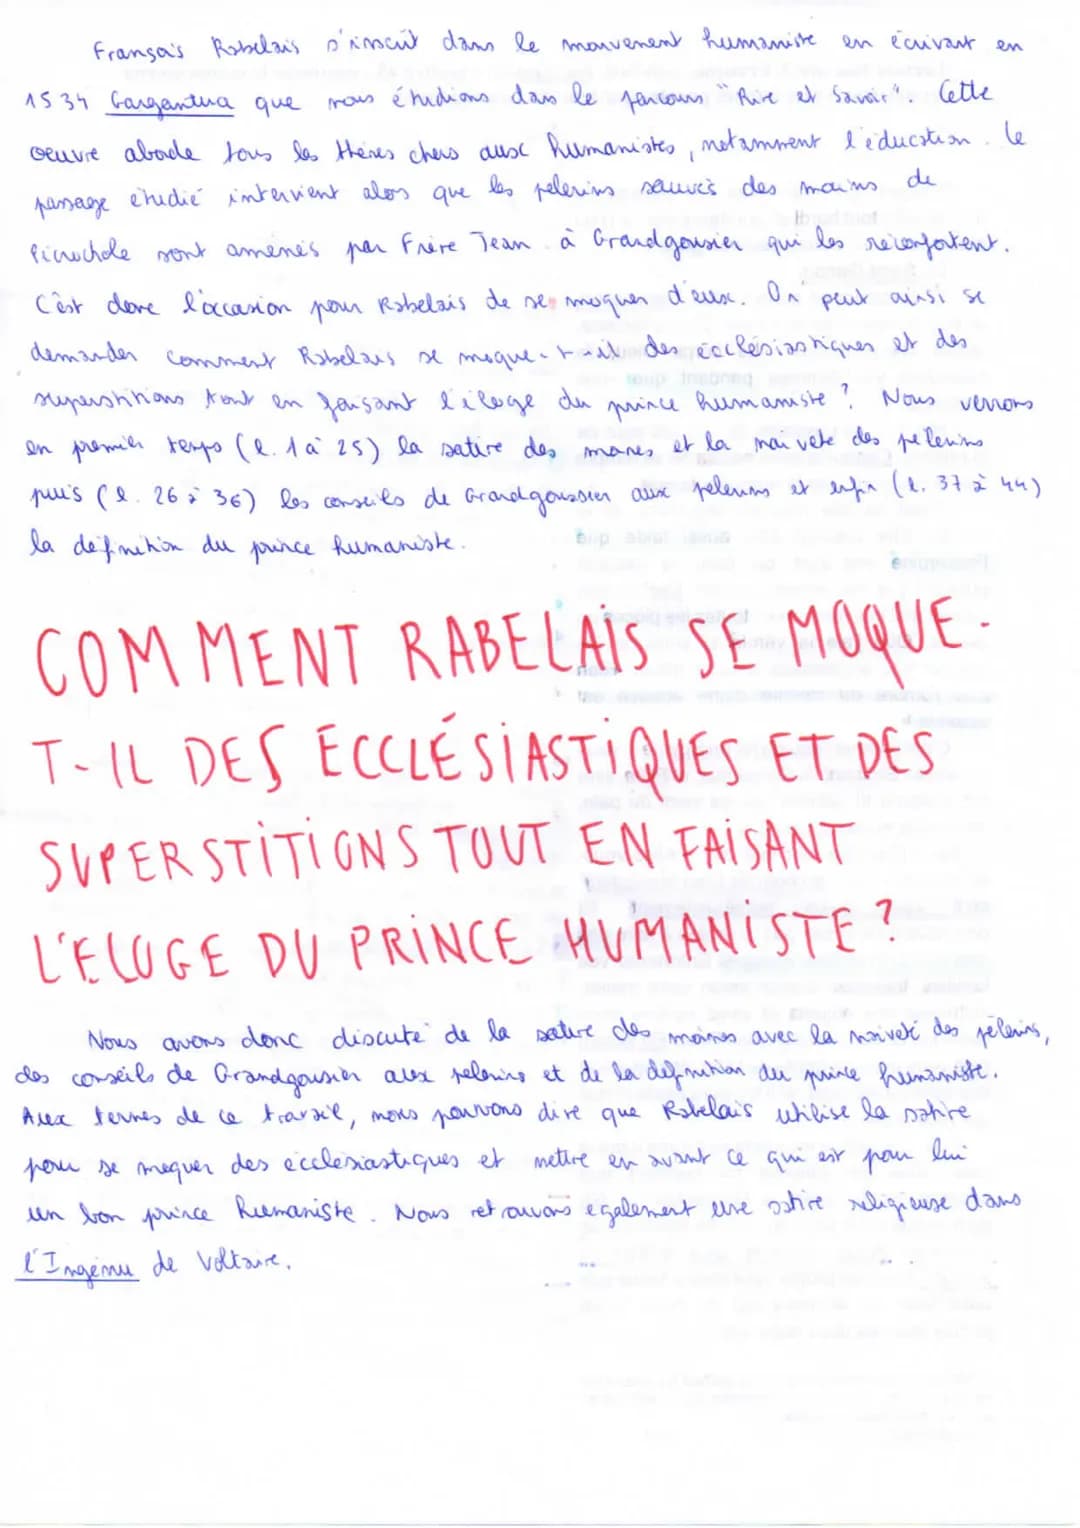 François Rabelais s'inscrit dans le mouvement humaniste en écrivant en
1534 Gargantua que nous étudions dans le parcours "Rire et Savoir". Cette
oeuvre aborde tous les thèmes chers aux humanistes, notamment l'éducation. Le
passage étudié intervient alors que les pelerins sauvés des mains de
Picrochole sont amenés par Frère Jean à Grandgousier qui les réconfortent.
C'est donc l'occasion pour Rabelais de se moquer d'eux. On peut ainsi se
demander comment Rabelais se moque-t-il des ecclésiastiques et des
superstitions tout en faisant l'éloge du prince humaniste ? Nous verrons
en premier temps (l. 1 à 25) la satire des moines et la naiveté des pélerins
puis (l. 26 à 36) les conseils de Grandgousier aux pelerins et enfin (l. 37 à 44)
la définition du prince humaniste.
COMMENT RABELAIS SE MOQUE-
T-IL DES ECCLÉSIASTIQUES ET DES
SUPERSTITIONS TOUT EN FAISANT
L'ELOGE DU PRINCE HUMANISTE ?
Nous avons donc discuté de la satire des moines avec la naiveté des pélerins,
des conseils de Grandgousier aux pelerins et de la définition du prince humaniste.
Aux termes de ce travail, nous pouvons dire que Rabelais utilise la satire
pour se moquer des ecclésiastiques et mettre en avant ce qui est pour lui
un bon prince humaniste. Nous retrouvons également une satire religieuse dans
l'Ingénu de Voltaire.